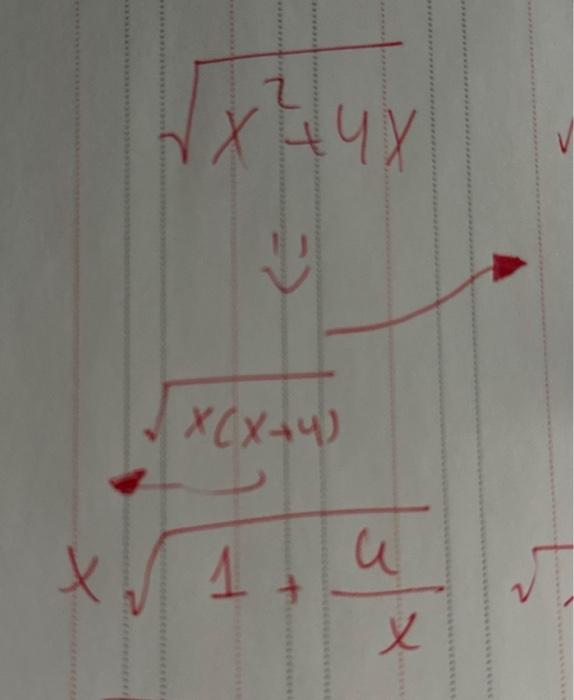 √(x²+4x)
⇓
√(x(x+4))
x√(1 + 4/x)